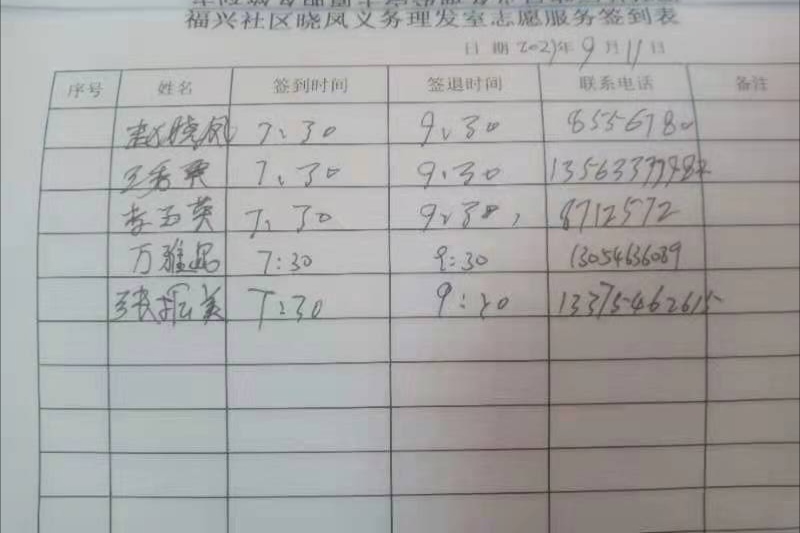 福兴社区晓风义务理发室志愿服务签到表
日 期 2021年 9月 11日
序号 姓名 签到时间 签退时间 联系电话 备注
赵晓风 7:30 9:30 8556780
王秀英 7:30 9:30
李玉英 7:30 9:30 8712572
万雅 7:30 9:30 13054636089
张 美 7:30 13375462615